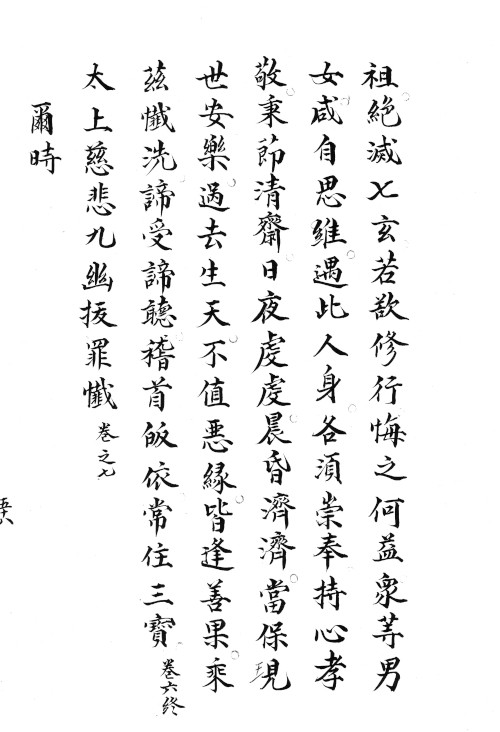 祖絕滅七玄若欲修行悔之何益衆等男
女咸自思維遇此人身各須崇奉持心孝
敬秉節清齋日夜虔虔晨昏濟濟當保現
世安樂過去生天不值惡緣皆逢善果乘
茲懺洗諦受諦聽稽首皈依常住三寶 卷六終
太上慈悲九幽拔罪懺 卷之七
爾時